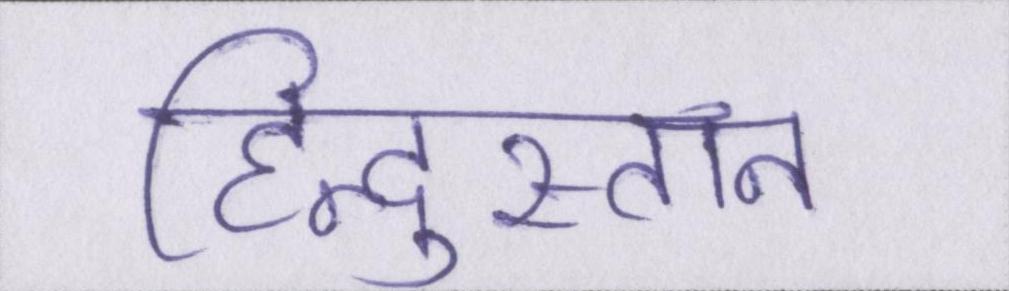 हिन्दुस्तान